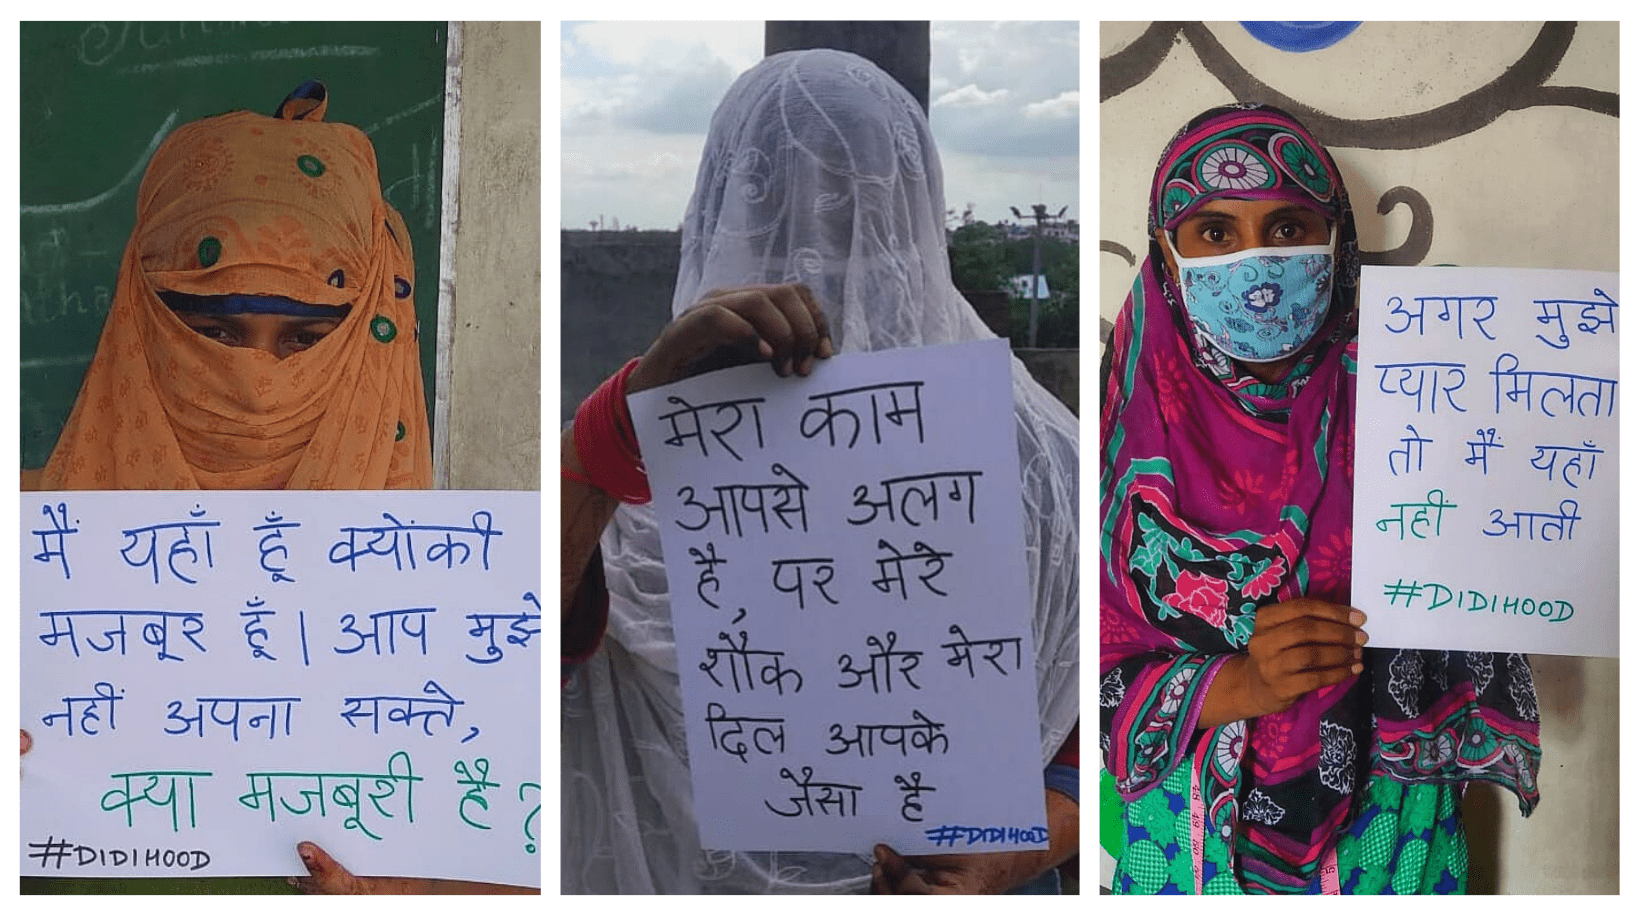 मैं यहाँ हूँ क्योंकी
मजबूर हूँ। आप मुझे
नहीं अपना सक्ते,
क्या मजबूरी है?
#DIDIHOOD
मेरा काम
आपसे अलग
है, पर मेरे
शौक और मेरा
दिल आपके
जैसा है
#DIDIHOOD
अगर मुझे
प्यार मिलता
तो मैं यहाँ
नहीं आती
#DIDIHOOD